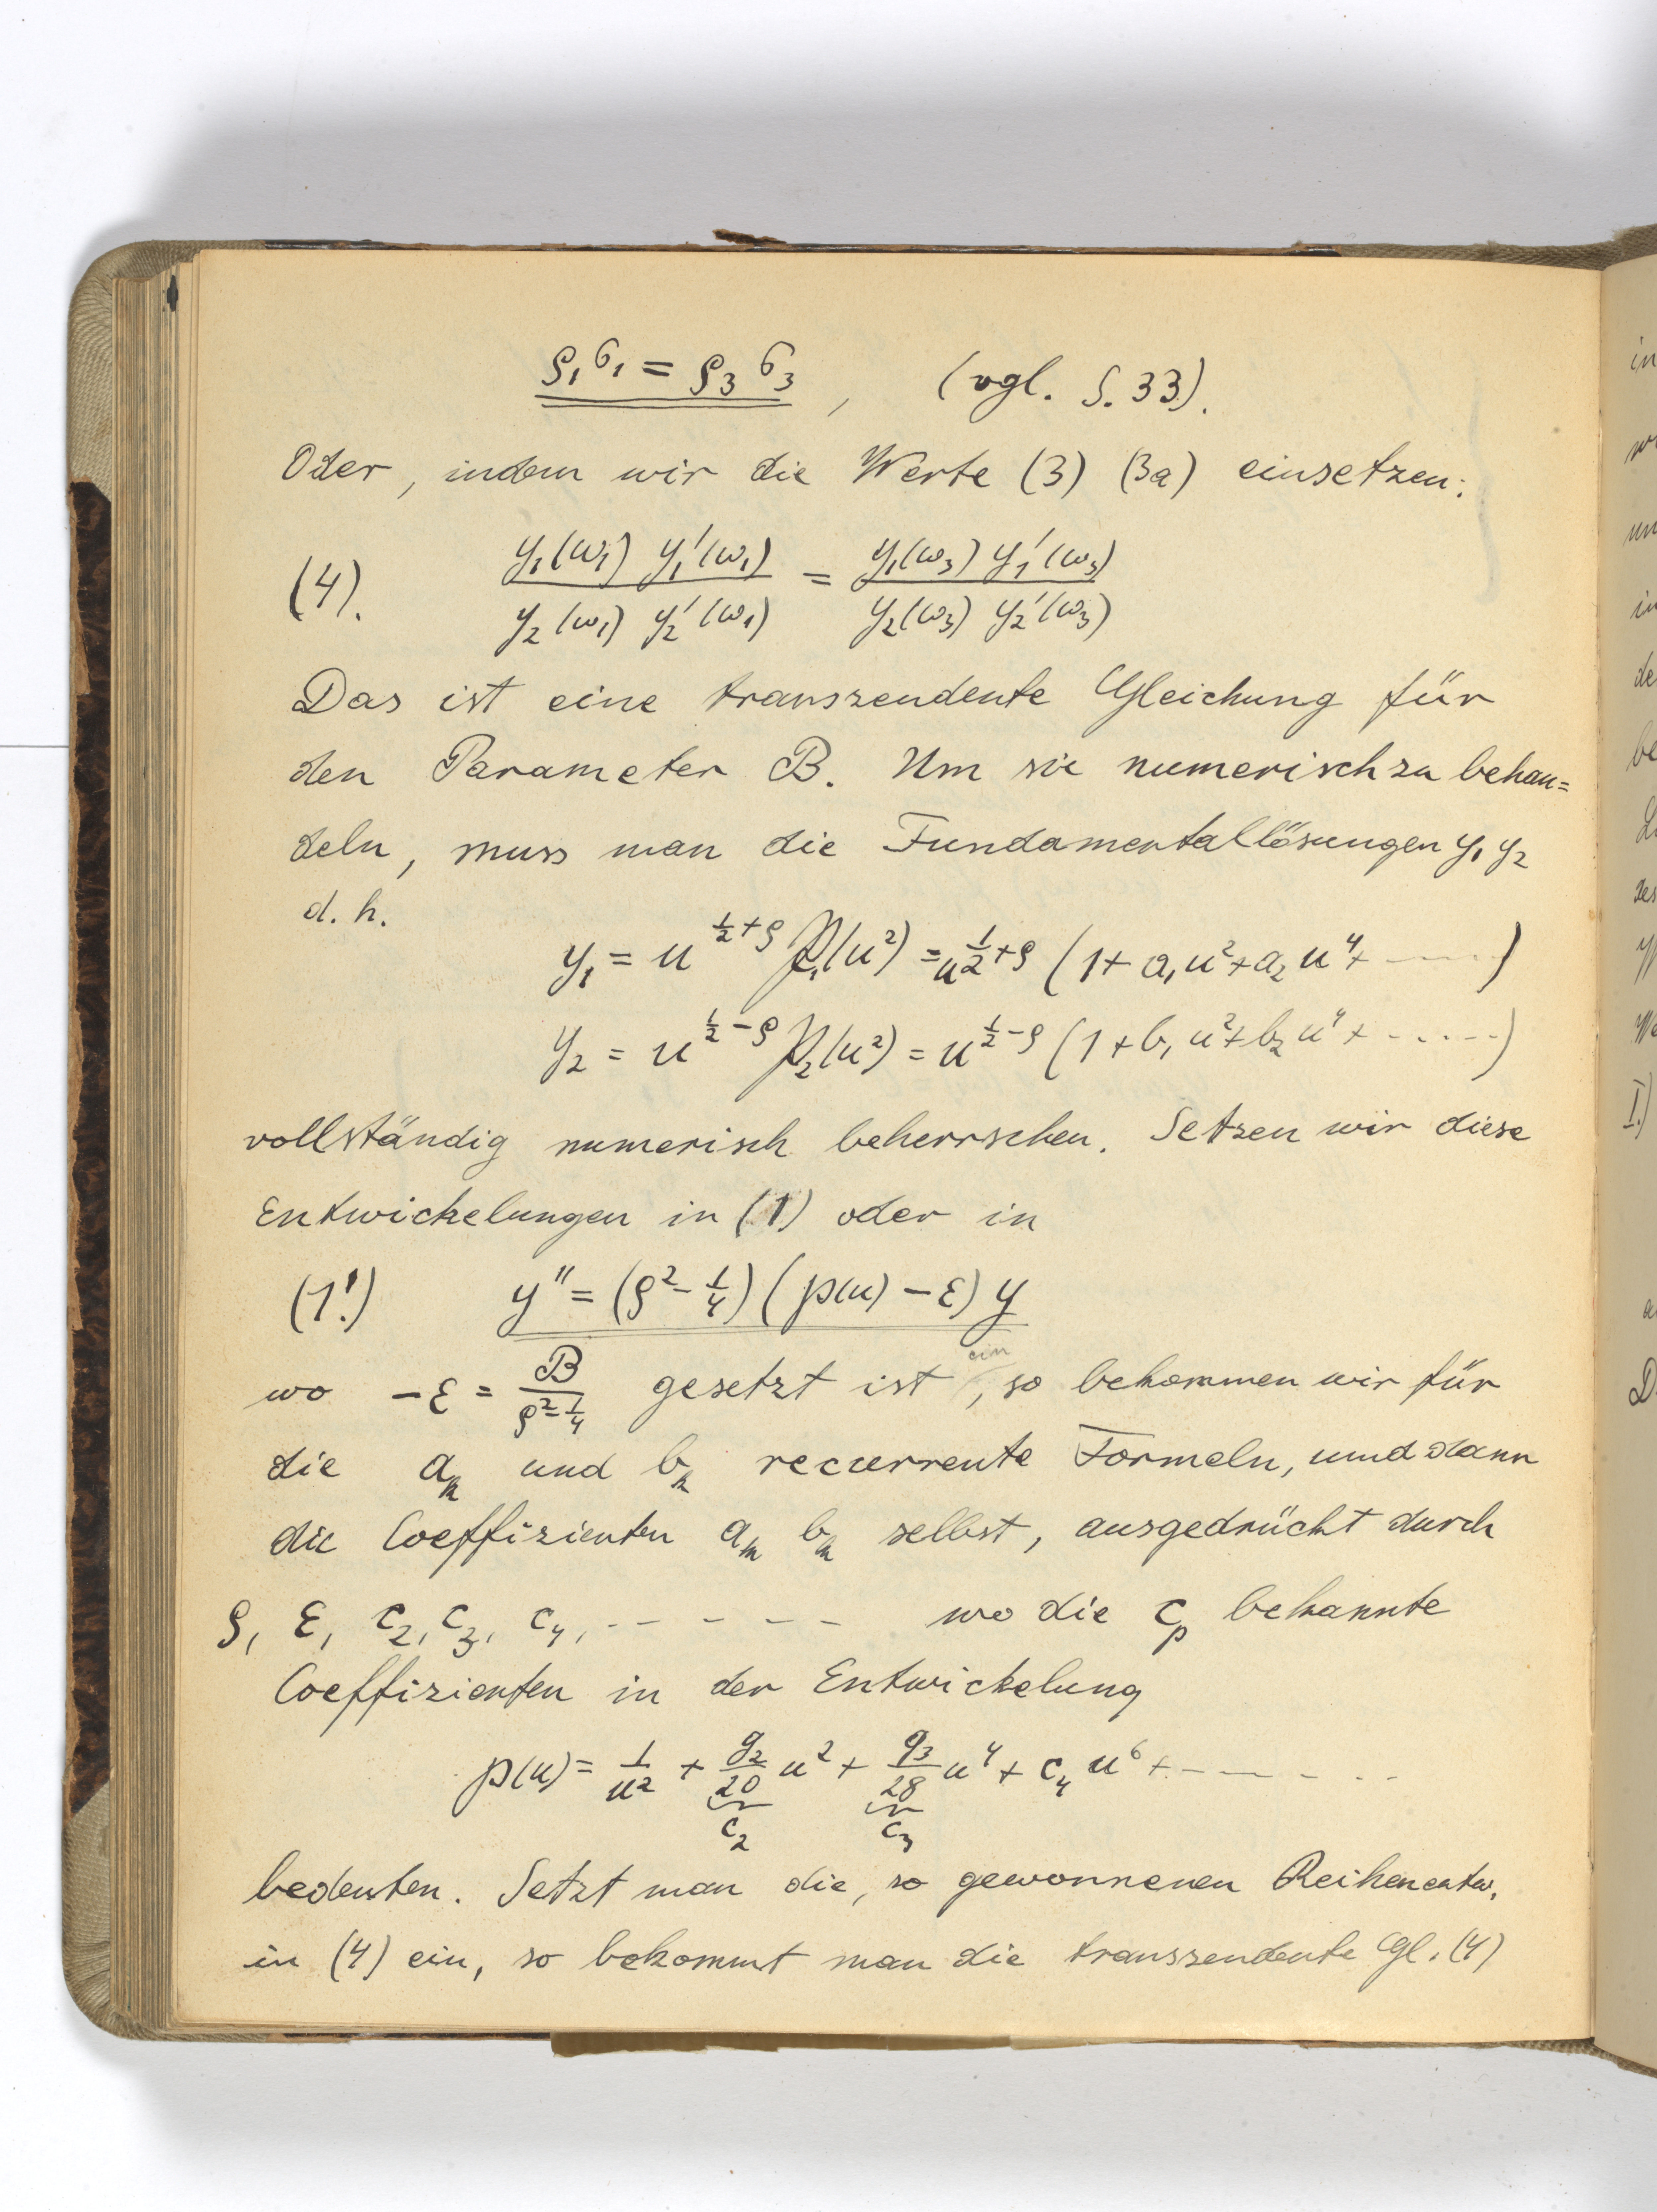 ϱ₁σ₁ = ϱ₃σ₃, (vgl. S. 33).
Oder, indem wir die Werte (3) (3a) einsetzen:
(4). y₁(ω₁) y₁'(ω₁) / y₂(ω₁) y₂'(ω₁) = y₁(ω₃) y₁'(ω₃) / y₂(ω₃) y₂'(ω₃)
Das ist eine transzendente Gleichung für
den Parameter B. Um sie numerisch zu behan=
deln, muss man die Fundamentallösungen y₁ y₂
d. h.
y₁ = u^{½+ϱ} 𝔓₁(u²) = u^{½+ϱ} (1 + a₁u² + a₂u⁴ + ‐‐‐‐)
y₂ = u^{½-ϱ} 𝔓₂(u²) = u^{½-ϱ} (1 + b₁u² + b₂u⁴ + ‐‐‐‐‐)
vollständig numerisch beherrschen. Setzen wir diese
Entwickelungen in (1) oder in
(1'.) y'' = (ϱ² - ¼) (℘(u) - ε) y
ein
wo -ε = B / (ϱ² - ¼) gesetzt ist, so bekommen wir für
die aₙ und bₙ recurrente Formeln, und dann
die Coeffizienten aₙ bₙ selbst, ausgedrückt durch
ϱ, ε, c₂, c₃, c₄, ‐ ‐ ‐ ‐ ‐ wo die cₚ bekannte
Coeffizienten in der Entwickelung
℘(u) = 1/u² + g₂/20 u² + g₃/28 u⁴ + c₄ u⁶ + ‐ ‐ ‐ ‐ ‐
c₂ c₃
bedeuten. Setzt man die, so gewonnenen Reihenentw.
in (4) ein, so bekommt man die transzendente Gl. (4)